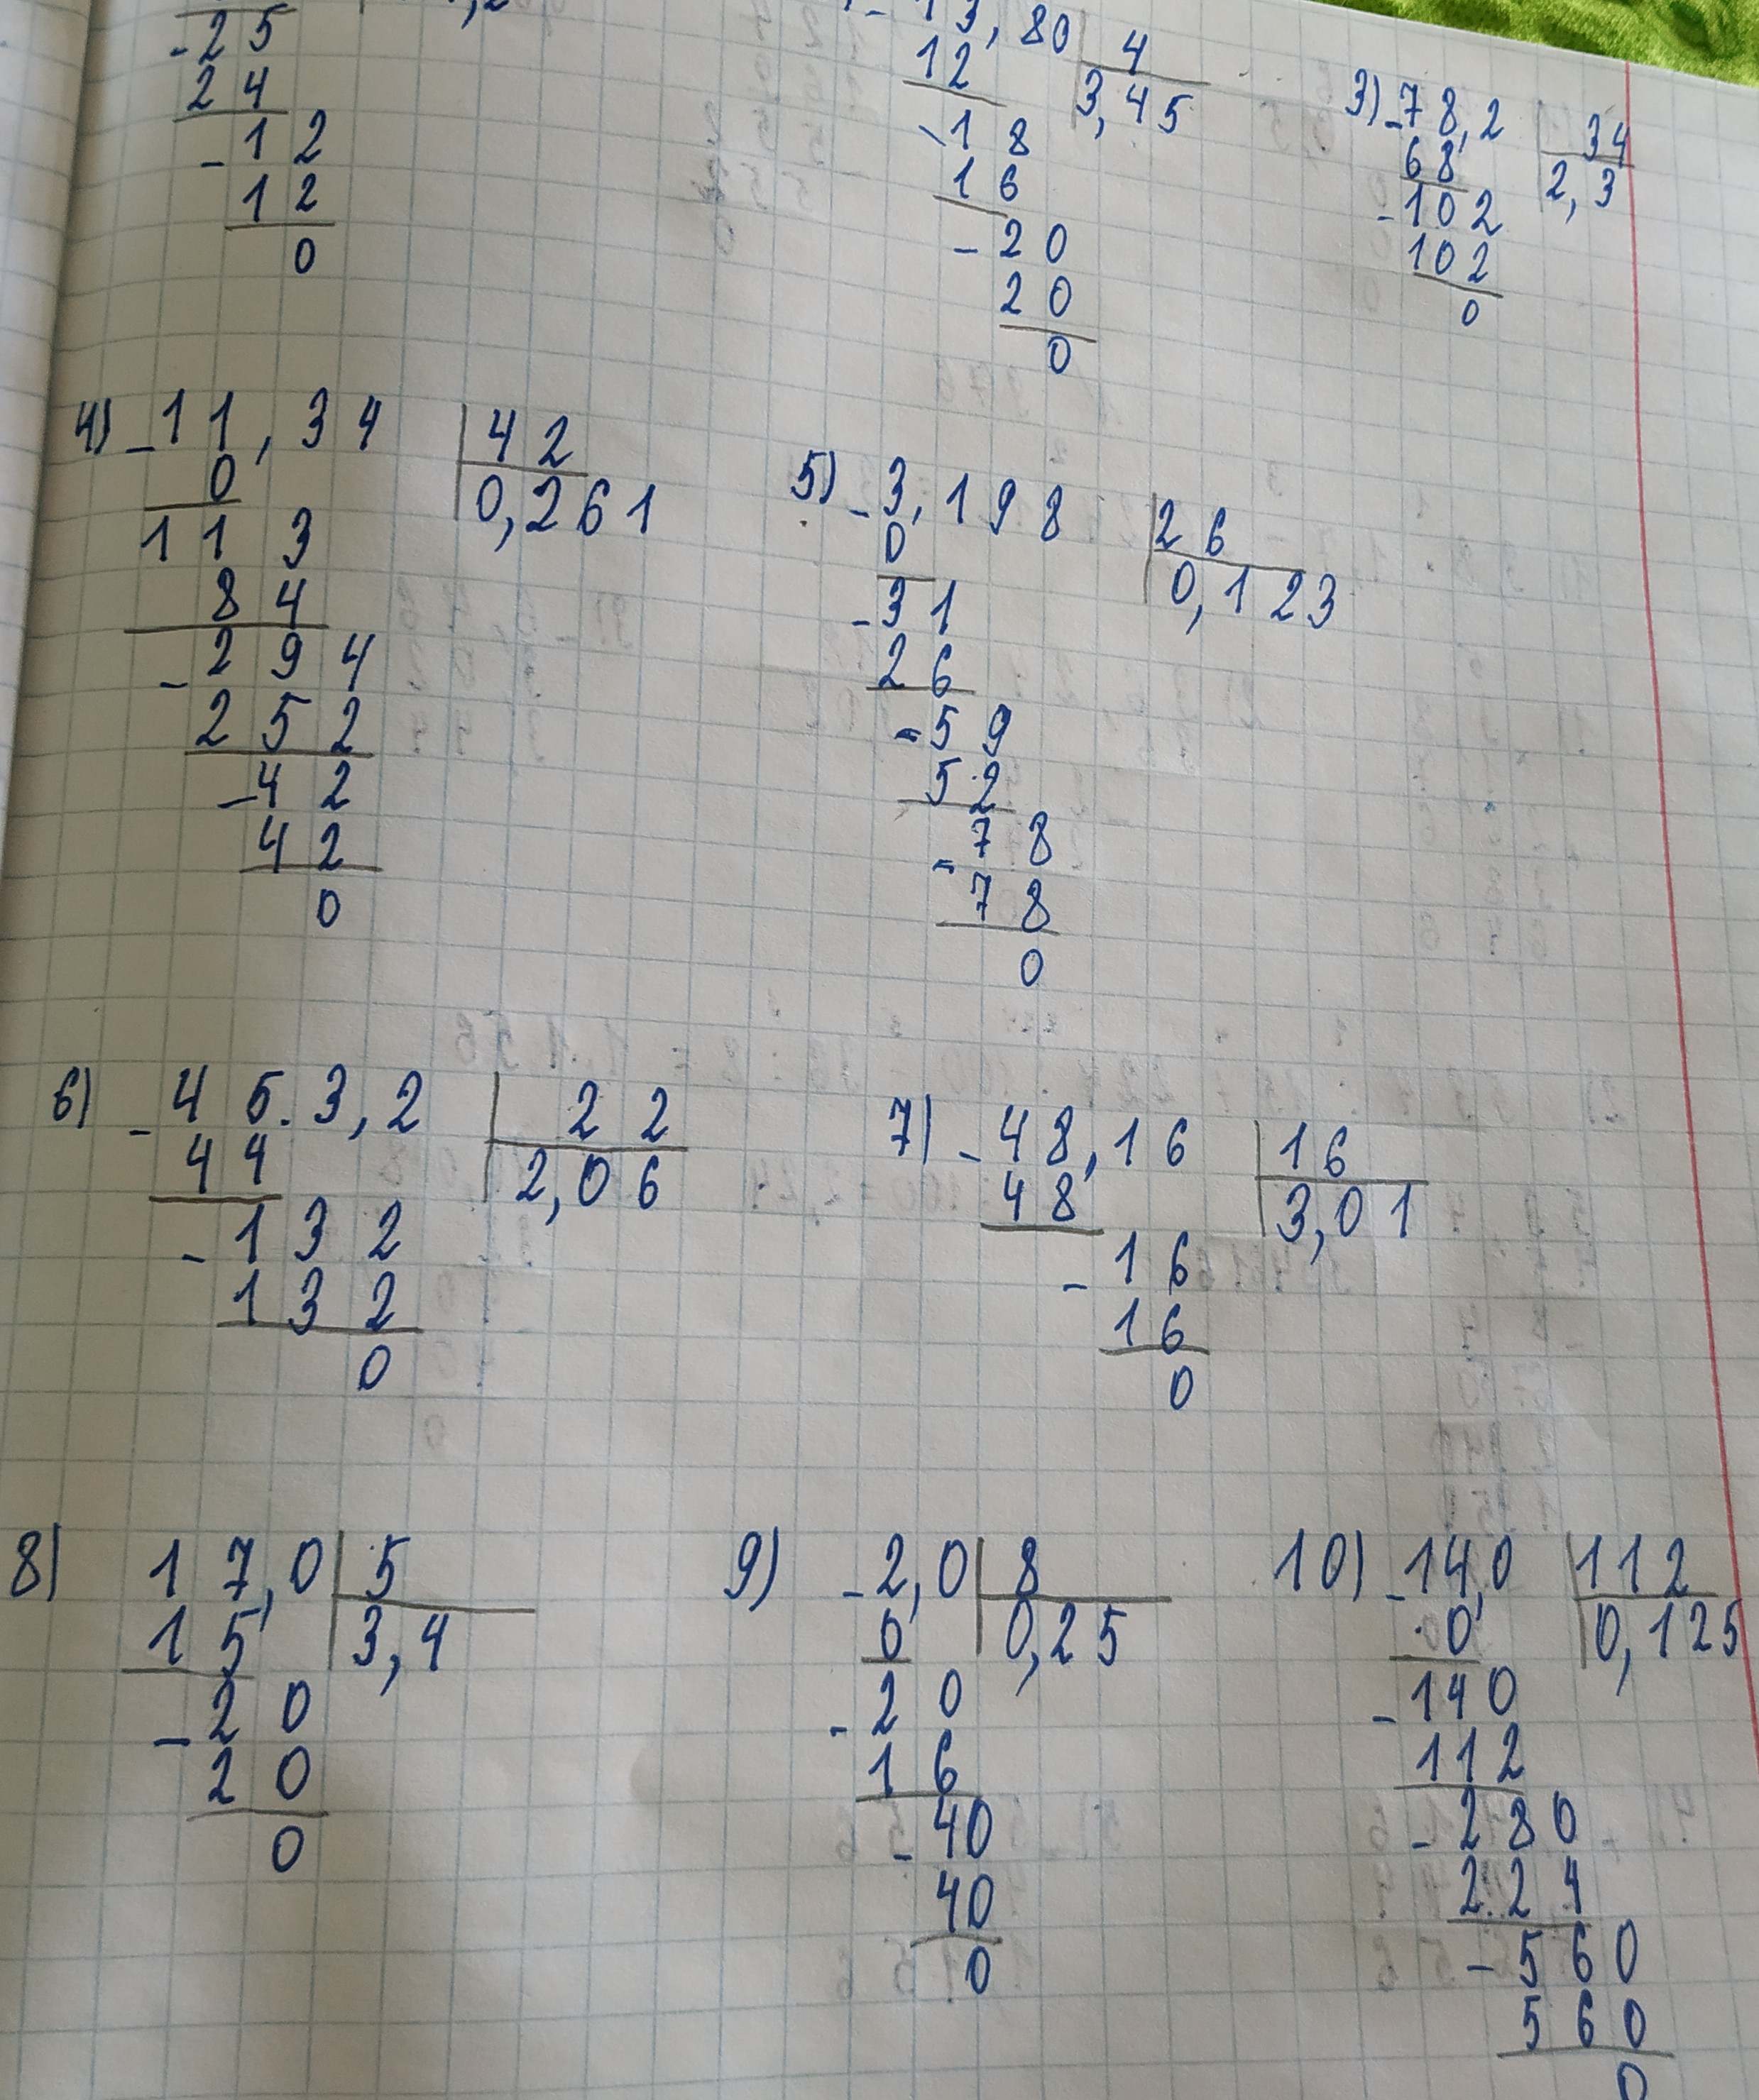 -25
24
-12
12
0
13,80 4
12 3,45
-18
16
-20
20
0
3) -78,2 34
68 2,3
-102
102
0
4) -11,34 42
0 0,261
113
84
-294
252
-42
42
0
5) -3,198 26
0 0,123
-31
26
-59
52
-78
78
0
6) -45.3,2 22
44 2,06
-132
132
0
7) -48,16 16
48 3,01
-16
16
0
8) 17,0 5
15 3,4
-20
20
0
9) -2,0 8
0 0,25
-20
16
-40
40
0
10) -14,0 112
0 0,125
-140
112
-280
224
-560
560
0